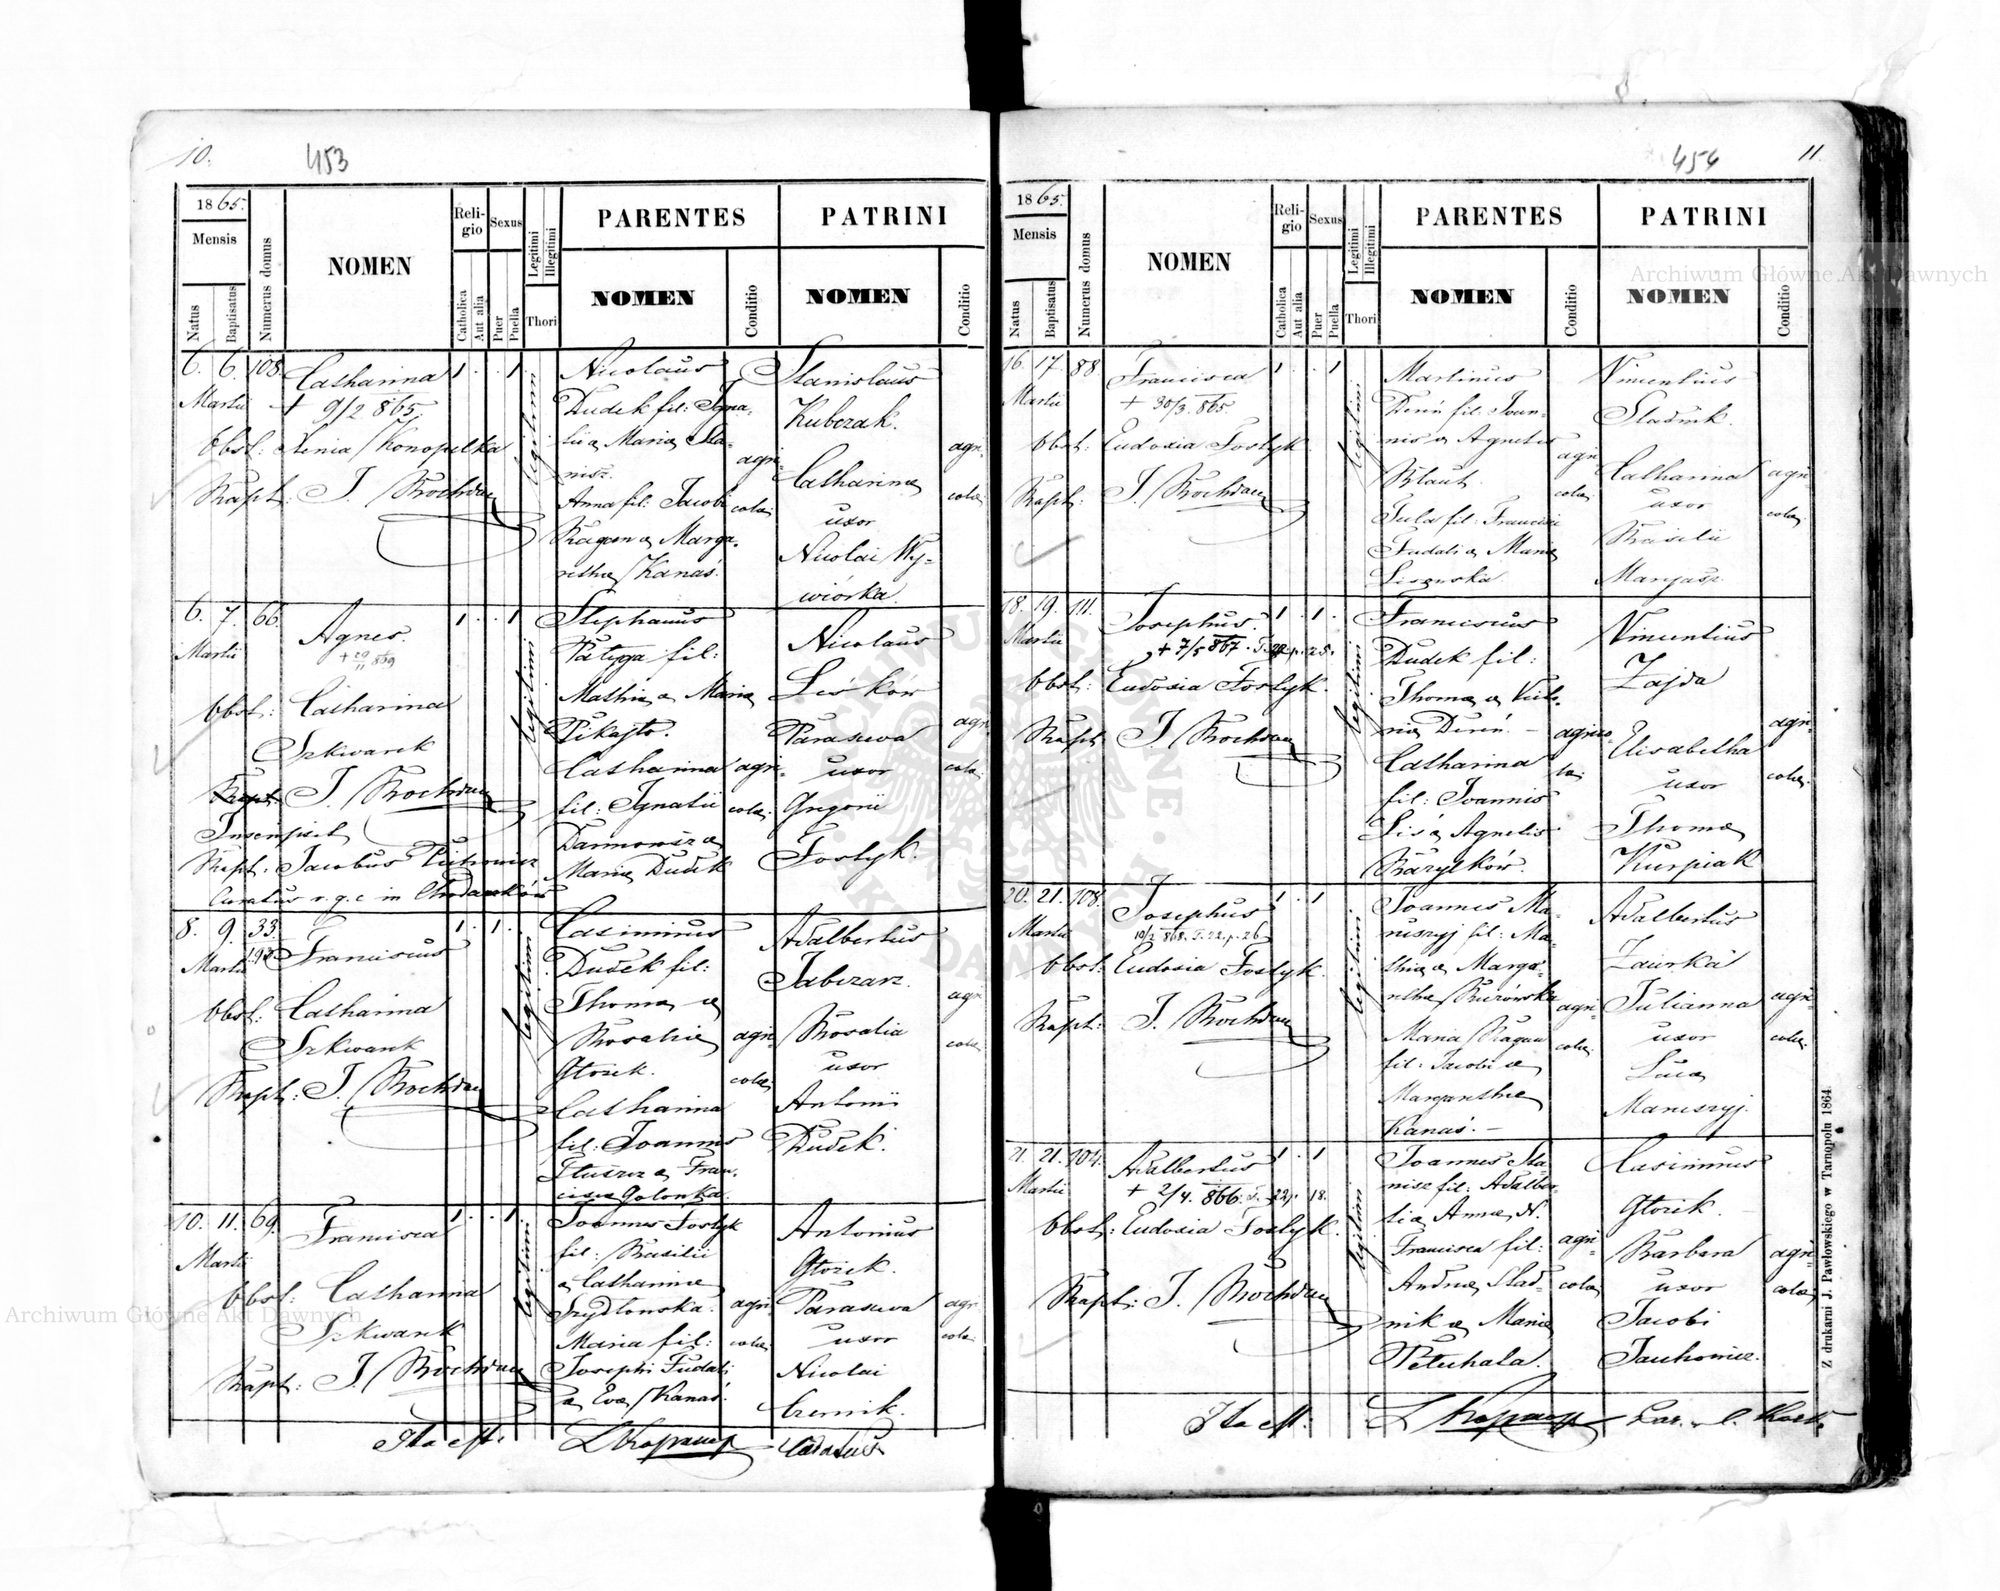 10.
453
1865.
Mensis
Natus
Baptisatus
Numerus domus
NOMEN
Religio
Catholica
Aut alia
Sexus
Puer
Puella
Legitimi
Illegitimi
Thori
PARENTES
NOMEN
Conditio
PATRINI
NOMEN
Conditio
6. 6. 108.
Martii
Catharina
+ 9/2 865.
Obst: Xenia Konopelka
Bapt: J.
1 . . 1
legitimi
Nicolaus
Dudek fil: Igna-
tii a Maria Sta-
nisz.
Anna fil: Jacobi
Ragan a Marga-
retha Kanas.
agri-
colae
Stanislaus
Kubczak.
Catharina
uxor
Nicolai Wy-
wiórka.
agri-
colae
6. 7. 66.
Martii
Agnes.
+ 29/11 869
Obst: Catharina
Szkwarek
Bapt: J.
Inscripsit
Bapt: Jacobus
Curatus r. g. c. in
1 . . 1
legitimi
Stephanus
Patyga fil:
Mathia a Maria
Pikajto.
Catharina
fil: Ignatii
Maria Dudek
agri-
colae
Nicolaus
Leśków
Parasceva
uxor
Gregorii
Fostyk.
agri-
colae
8. 9. 33.
Martii
Franciscus
Obst: Catharina
Szkwarek
Bapt: J.
1 . 1 .
legitimi
Casimirus
Dudek fil:
Thoma a
Rosalia
Głozek.
Catharina
fil: Joannis
Tłuszcz a Fran-
cisca Golonka.
agri-
colae
Adalbertus
Tabczarz
Rosalia
uxor
Antonii
Dudek.
agri-
colae
10. 11. 69.
Martii
Francisca
Obst: Catharina
Szkwarek
Bapt: J.
1 . . 1
legitimi
Joannes Fostyk
fil: Basilii
a Catharina
Szydłowska.
Maria fil:
Josephi Fudali
a Eva Kanas.
agri-
colae
Antonius
Głozek.
Parasceva
uxor
Nicolai
Czernik.
agri-
colae
Ita est.
454
11.
1865.
Mensis
Natus
Baptisatus
Numerus domus
NOMEN
Religio
Catholica
Aut alia
Sexus
Puer
Puella
Legitimi
Illegitimi
Thori
PARENTES
NOMEN
Conditio
PATRINI
NOMEN
Conditio
16. 17. 88
Martii
Francisca
+ 30/3. 865.
Obst: Eudoxia Fostyk
Bapt: J.
1 . . 1
legitimi
Martinus
Dereń fil: Joan-
nis a Agnetis
Blaut
Jula fil: Francisci
Fudali a Maria
agri-
colae
Vincentius
Sladnik.
Catharina
uxor
Basilii
Maryasz.
agri-
colae
18. 19. 111.
Martii
Josephus.
+ 7/5 867. T. 22. p. 25.
Obst: Eudoxia Fostyk.
Bapt: J.
1 . 1 .
legitimi
Franciscus
Dudek fil:
Thoma a Victo-
ria Dereń.
Catharina
fil: Joannis
Lis a Agnetis
Bazylków.
Vincentius
Zajda
Elisabetha
uxor
Thoma
Kurpiak
agri-
colae
20. 21. 108.
Martii
Josephus
10/2 868. T. 22. p. 26
Obst: Eudoxia Fostyk.
Bapt: J.
1 . 1
legitimi
Joannes Ma-
ruszyj fil: Ma-
thia a Marga-
retha Burówska
Maria Ragan
fil: Jacobi a
Margaretha
Kanas. –
agri-
colae
Adalbertus
Zawrka
Julianna
uxor
Luca
Maruszyj.
agri-
colae
21. 21. 104.
Martii
Adalbertus
+ 2/4. 866. T. 22 p. 18.
Obst: Eudoxia Fostyk.
Bapt: J.
1 . 1
legitimi
Joannes Sta-
nisz fil: Adalber-
ti a Anna N.
Francisca fil:
Andrea Slad-
nik a Maria
Petuhala.
agri-
colae
Casimirus
Głozek.
Barbara
uxor
Jacobi
agri-
colae
Ita est.
Z drukarni J. Pawłowskiego w Tarnopolu 1864.
Archiwum Główne Akt Dawnych
Archiwum Główne Akt Dawnych
ARCHIWUM GŁÓWNE AKT DAWNYCH